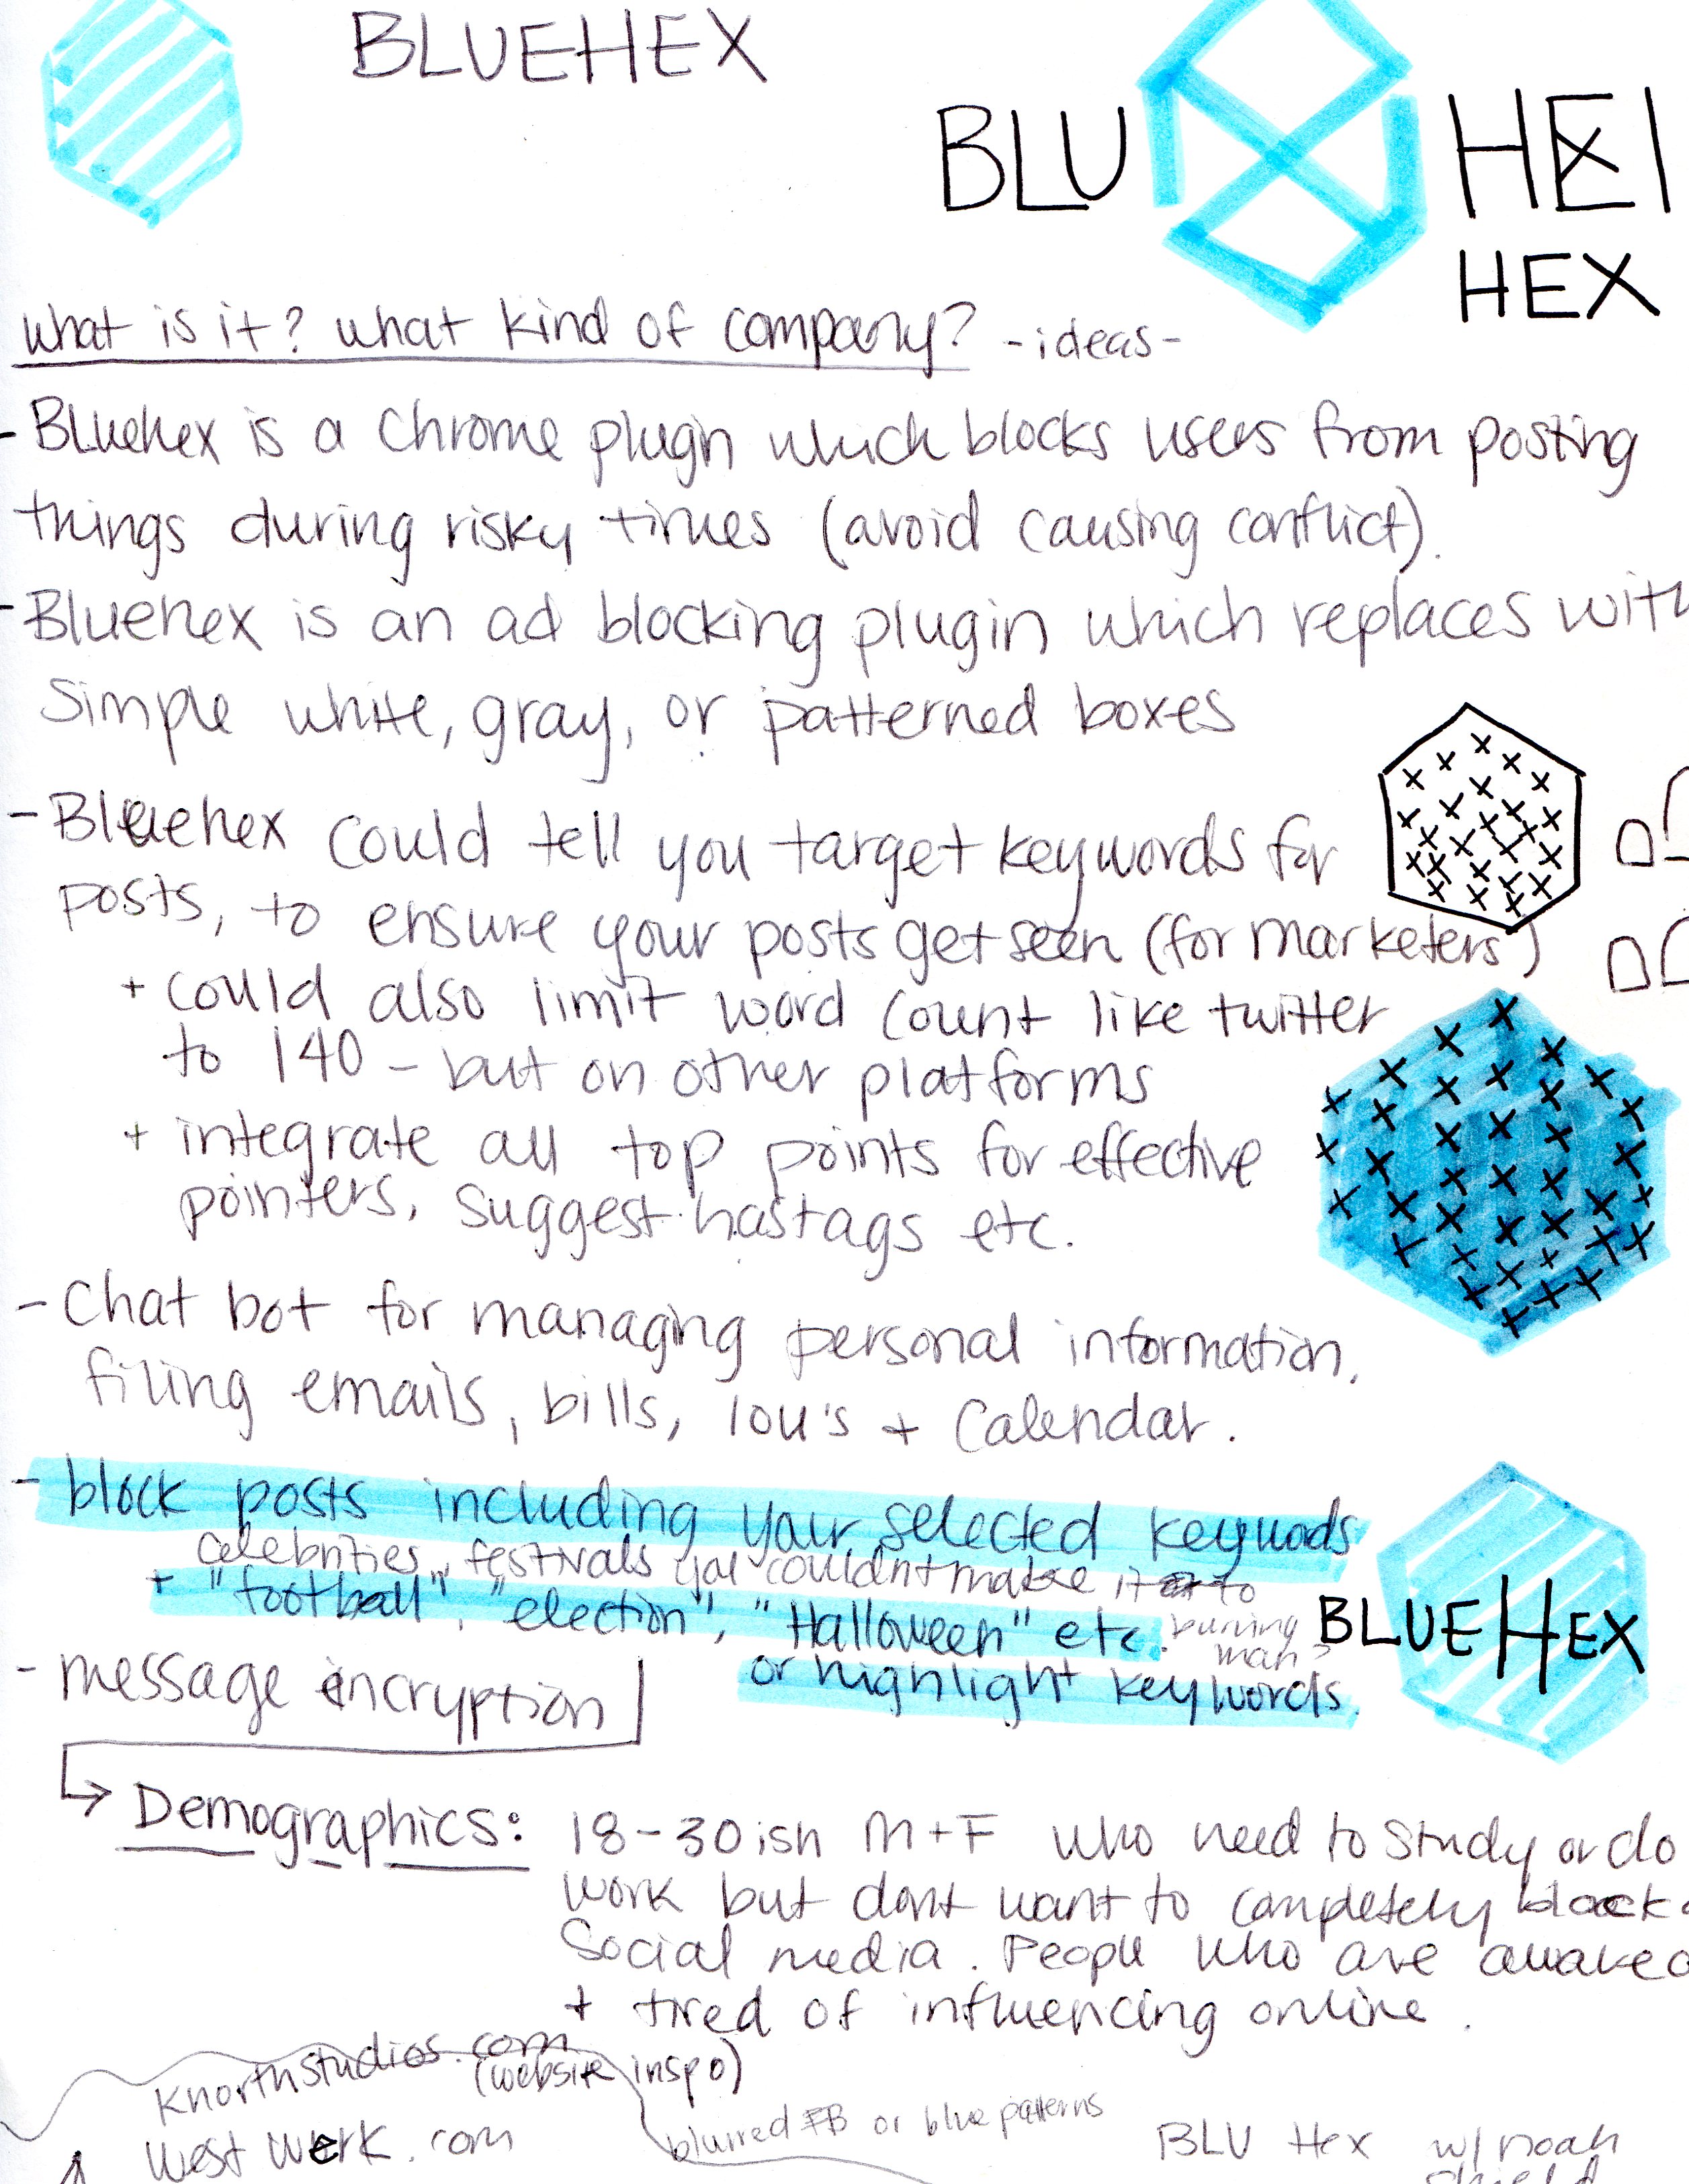 BLUEHEX
BLU HEX
HEX
what is it? what kind of company? -ideas-
- Bluehex is a Chrome plugin which blocks users from posting
things during risky times (avoid causing conflict).
- Bluehex is an ad blocking plugin which replaces with
simple white, gray, or patterned boxes
- Bluehex could tell you target keywords for
posts, to ensure your posts get seen (for marketers)
+ could also limit word count like twitter
to 140 - but on other platforms
+ integrate all top points for effective
pointers, suggest hastags etc.
- Chat bot for managing personal information,
filing emails, bills, IOU's + Calendar.
- block posts including your selected keywods
celebrities, festivals you couldn't make it to
+ "football", "election", "Halloween" etc. burning
man?
or highlight keywords.
BLUEHEX
- message encryption
Demographics: 18-30ish M+F who need to study or do
work but dont want to completely block
social media. People who are awared
+ tired of influencing online.
Knorthstudios.com
(website inspo)
westwerk.com
blurred FB or blue patterns
BLU Hex w/ noah
shield